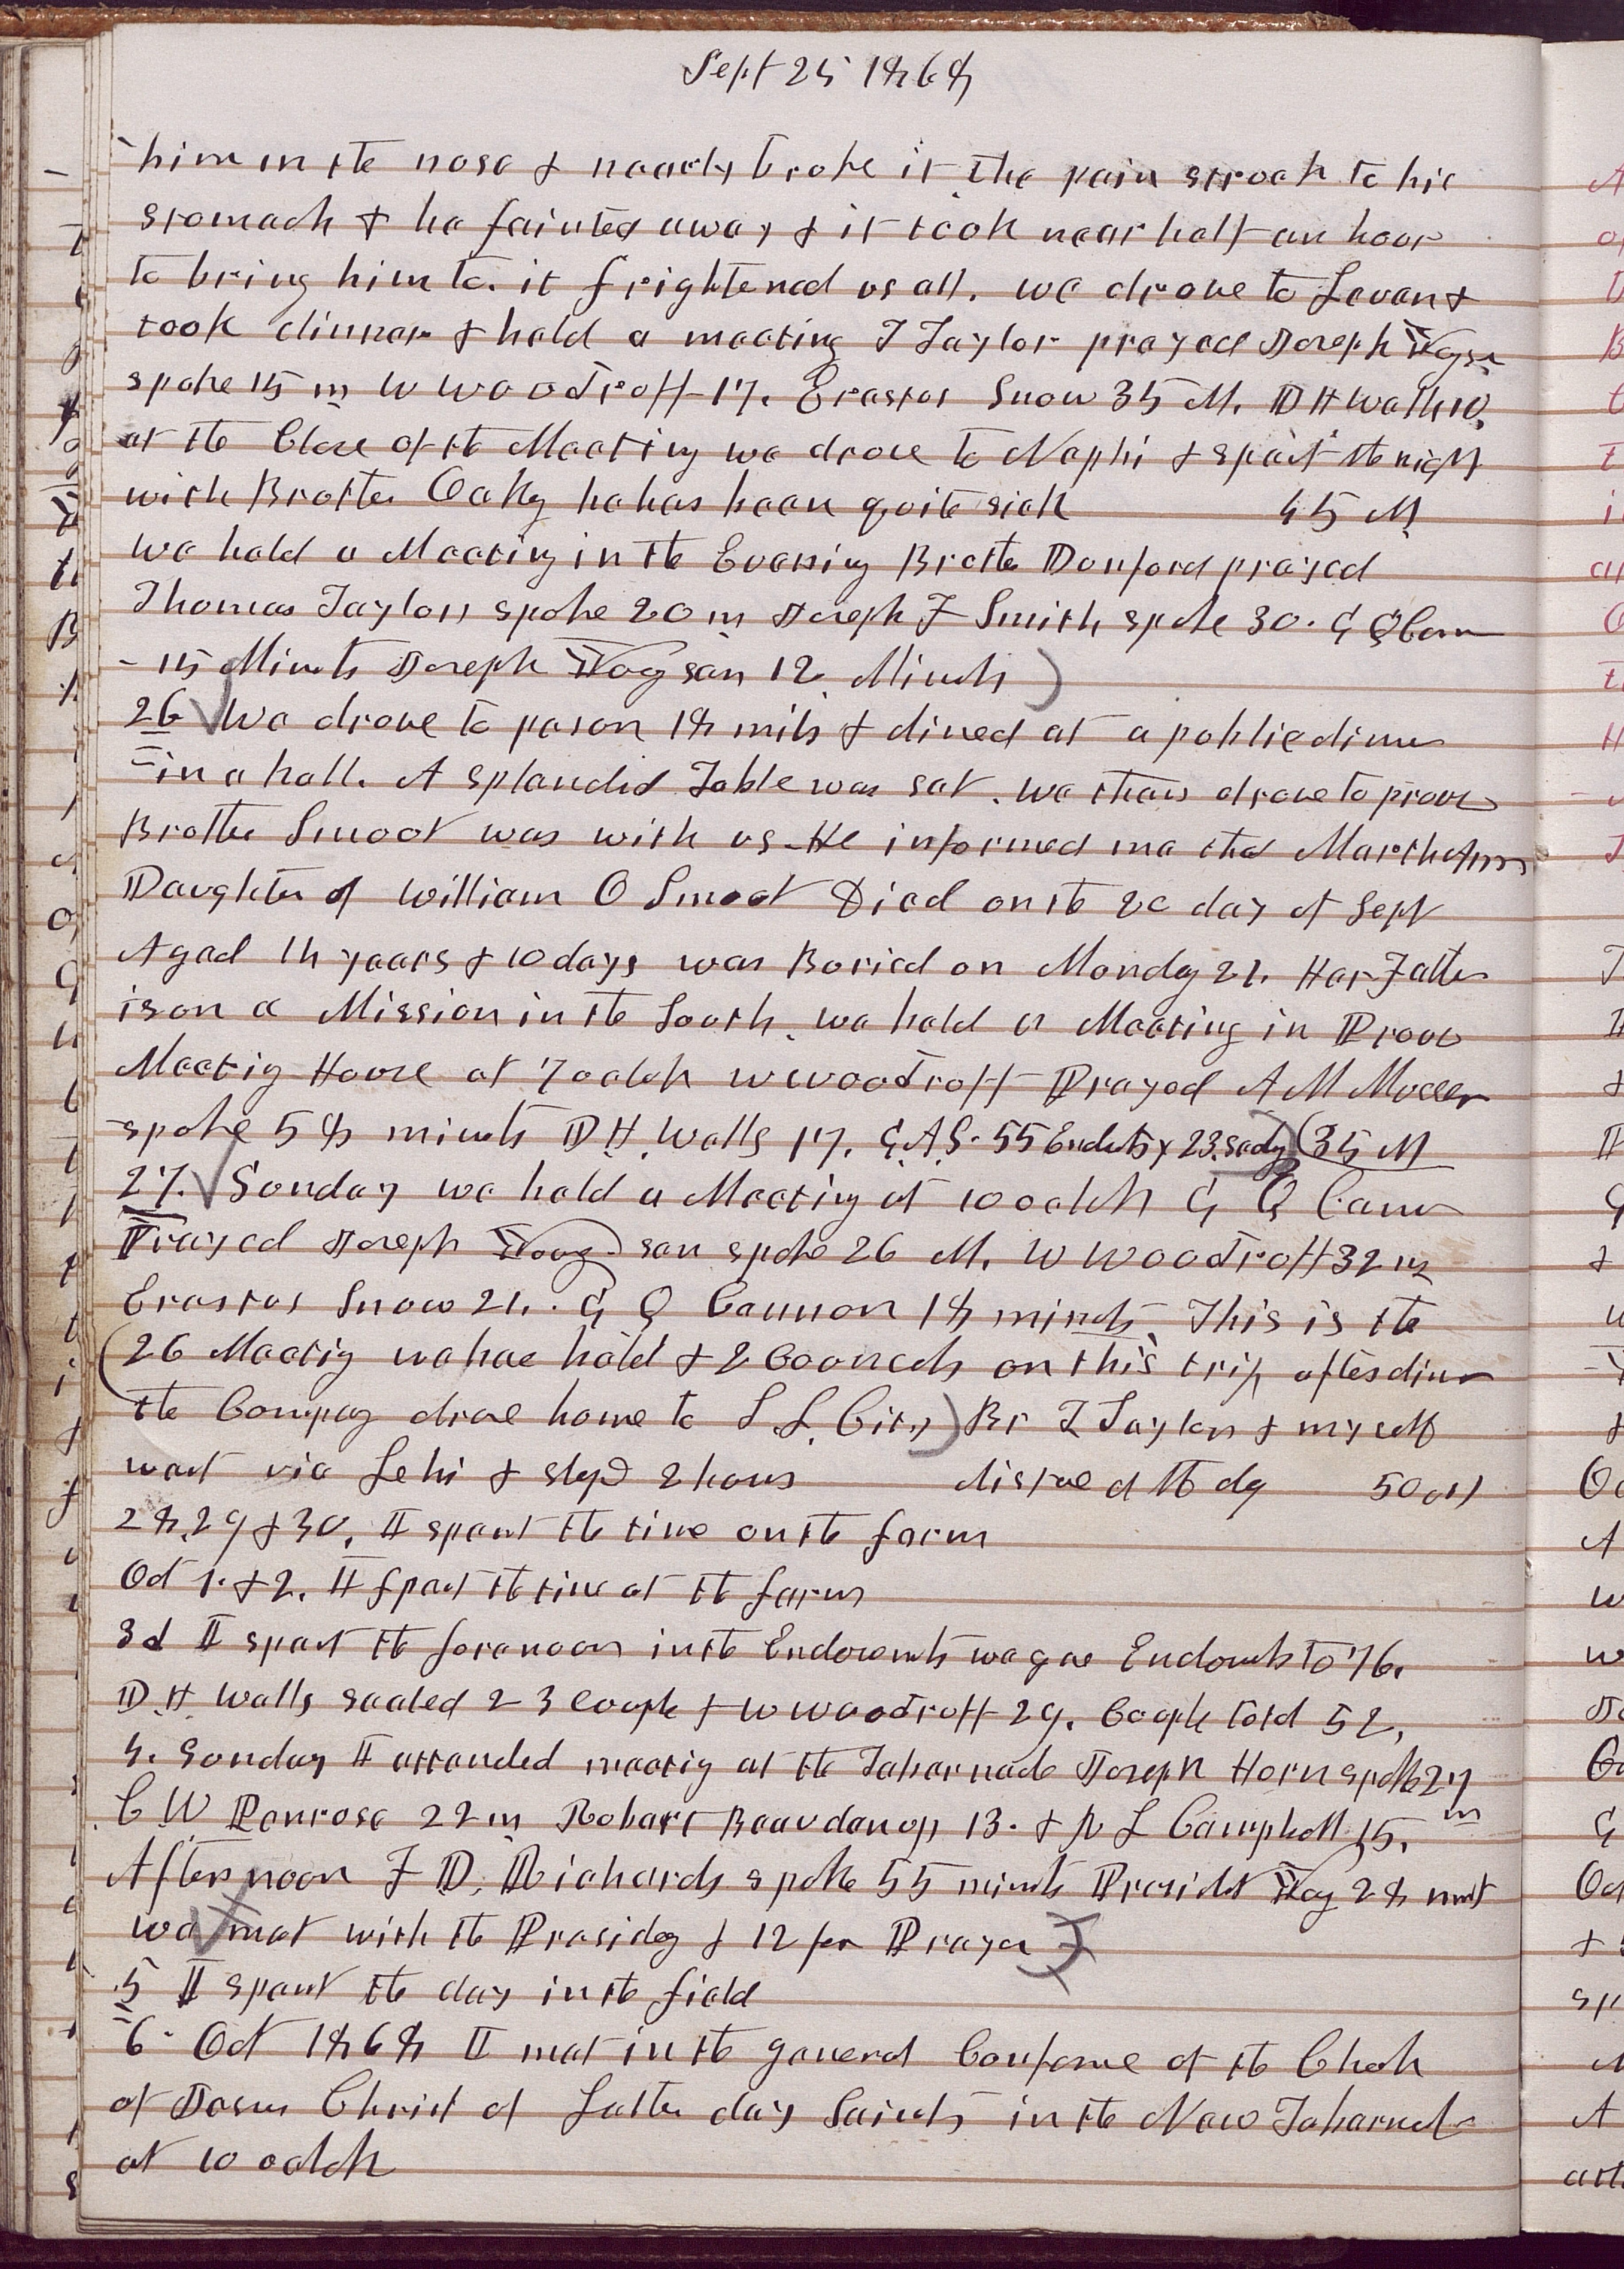 Sept 25 1868
him in the nose & nearly broke it the pain strook to his
stomach & he fainted away & it took near half an hour
to bring him to. it frightened us all. we drove to Levan &
took dinner & held a meeting T Taylor prayed Joseph Young
spoke 15 m W Woodruff 17. Erastus Snow 35 M. D H Wells 10.
at the Close of the Meeting we drove to Nephi & spent the night
with Brother he has been quite sick 45 M
we held a Meeting in the Evening Brother prayed
Thomas Taylor spoke 20 m Joseph F Smith spoke 30. G Q Cann
15 Minuts Joseph Young sen 12 Minuts
26 We drove to payson 18 mils & dined at a public dinner
in a hall. A splendid Table was set. we then drove to provo
Brother Smoot was with us He informed me that Marthann
Daughter of William C Smoot Died on the 20 day of Sept
Aged 14 years & 10 days was Buried on Monday 21. Her Father
is on a Mission in the South. we held a Meeting in Provo
Meeting House at 7 oclok W Woodruff Prayed A M Musser
spoke 58 minuts D H Wells 17. G. A. S. 55 23. (35 M
27. Sunday we held a Meeting at 10 oclok G Q Cann
Prayed Joseph Young sen spoke 26 M. W Woodruff 32 m
Erastus Snow 21. G Q Cannon 18 minuts This is the
(26 Meetig we have held & 2 Councils on this trip after dinner
the Company drove home to S L City) Br T Taylor & myself
went via Lehi & stopd 2 hours distance of the day 50 m
28, 29 & 30, I spent the time on the farm
Oct 1. & 2. I spent the time at the farm
3d I spent the forenoon in the Endowmts we gave Endowmts to 76.
D. H. Wells sealed 23 Couple & W Woodruff 29. Couple total 52,
4. Sunday I attended meetig at the Tabernacle Joseph Horn spoke 27 m
C W Penrose 22 m Robert 13. & R L Campbell 15.
Afternoon F D. Richards spoke 55 minuts Presidet Young 28 mint
we met with the Presidey & 12 for Prayer
5 I spent the day in the field
6 Oct 1868 I met in the general Conference of the Church
of Jesus Christ of Latter day Saints in the New Tabernacle
at 10 oclok